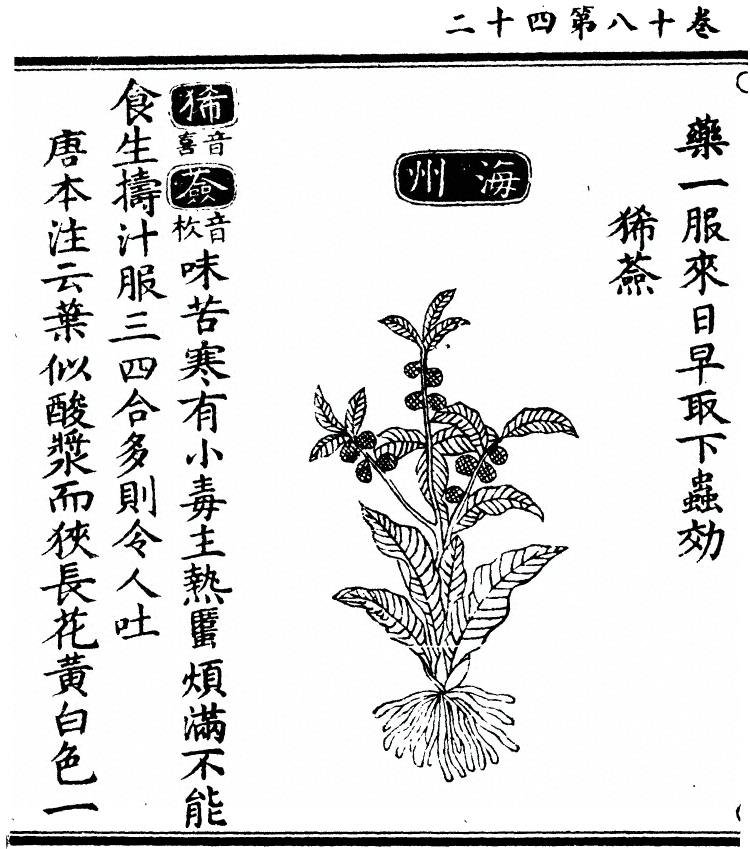 卷十八第四十二
藥一服來日早取下蟲効
豨薟
海州
豨音喜薟音杴味苦寒有小毒主熱䘌煩滿不能
食生擣汁服三四合多則令人吐
唐本注云葉似酸漿而狹長花黃白色一